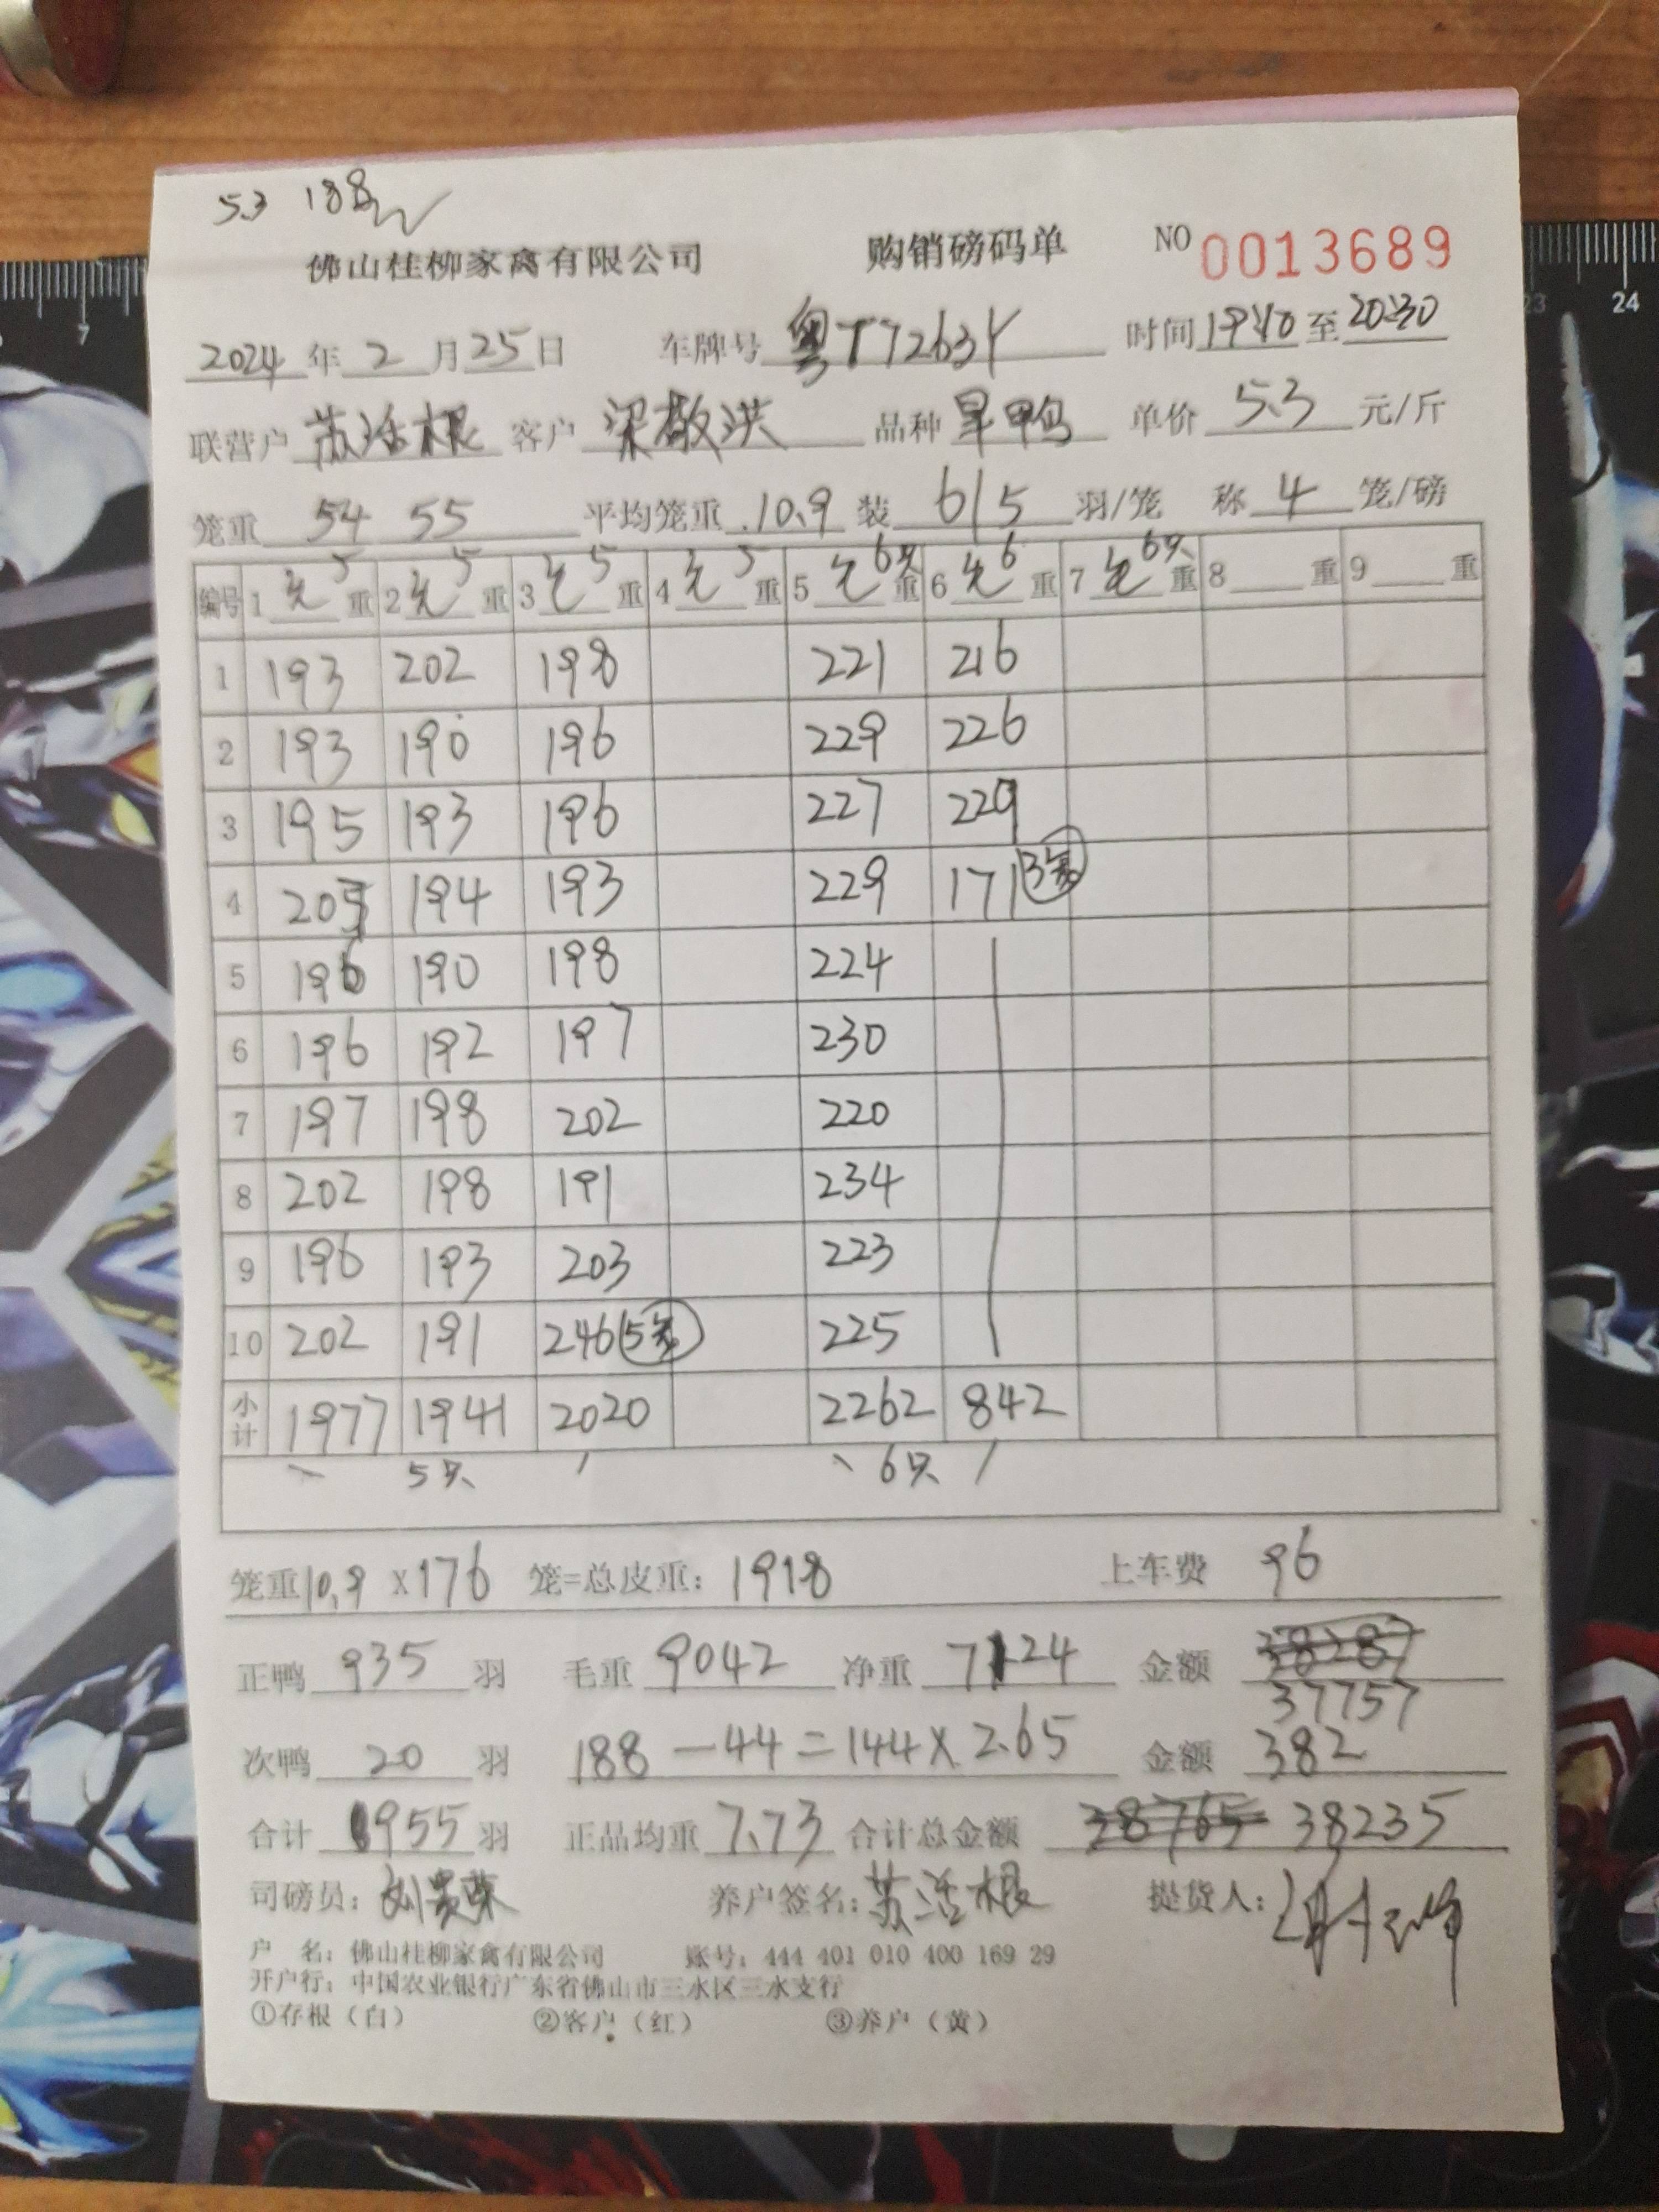 5.3 188
佛山桂柳家禽有限公司 购销磅码单 NO 0013689
2024年2月25日 车牌号 粤T7263Y 时间 19:40 至 20:30
联营户 苏活根 客户 梁敬洪 品种 旱鸭 单价 5.3 元/斤
笼重 54 55 平均笼重 10.9 装 6/5 羽/笼 称 4 笼/磅
编号 1 毛5重 2 毛5重 3 毛5重 4 毛5重 5 毛6只重 6 毛6重 7 毛6只重 8 重 9 重
1 193 202 198 221 216
2 193 190 196 229 226
3 195 193 196 227 229
4 207 194 193 229 171 (3笼)
5 196 190 198 224
6 196 192 197 230
7 197 198 202 220
8 202 198 191 234
9 196 193 203 223
10 202 191 246 (5笼) 225
小计 1977 1941 2020 2262 842
5只 6只
笼重 10.9 x 176 笼=总皮重: 1918 上车费 96
正鸭 935 羽 毛重 9042 净重 7124 金额 38287
37757
次鸭 20 羽 188 - 44 = 144 x 2.65 金额 382
合计 955 羽 正品均重 7.73 合计总金额 38765 38235
司磅员: 养户签名: 苏活根 提货人:
户 名: 佛山桂柳家禽有限公司 账号: 444 401 010 400 169 29
开户行: 中国农业银行广东省佛山市三水区三水支行
①存根（白） ②客户（红） ③养户（黄）
7
23 24